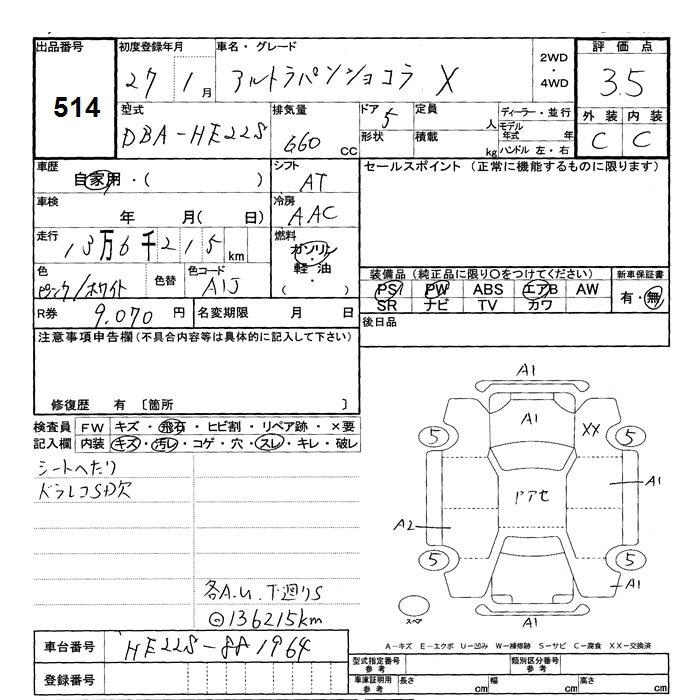 出品番号
514
初度登録年月
27 1月
車名・グレード
アルトラパンショコラ X
2WD
・
4WD
評価点
3.5
外装 内装
C C
型式
DBA-HE22S
排気量
660 CC
ドア 5
形状
定員 人
積載 kg
ディーラー・並行
モデル年式 年
ハンドル 左・右
車歴
自家用・( )
シフト
AT
セールスポイント (正常に機能するものに限ります)
車検
年 月( 日)
冷房
AAC
走行
13万6千215km
燃料
ガソリン
・
軽油
・
( )
色
ピンク/ホワイト
色替
色コード
A1J
装備品 (純正品に限り○をつけてください)
新車保証書
PS PW ABS エアB AW
有・無
SR ナビ TV カワ
R券 9,070円
名変期限 月 日
後日品
注意事項申告欄 (不具合内容等は具体的に記入して下さい)
修復歴 有 〔箇所 〕
検査員 FW キズ・飛石・ヒビ割・リペア跡・×要
記入欄 内装 キズ・汚レ・コゲ・穴・スレ・キレ・破レ
シートへたり
ドラレコSD欠
各A.U.下廻りS
⊙136215km
A1
A1
XX
5
5
ドアセ
A1
A2
5
5
A1
A1
スペア
A-キズ E-エクボ U-凹み W-補修跡 S-サビ C-腐食 XX-交換済
車台番号 HE22S-881964
登録番号
型式指定番号 参考
類別区分番号 参考
車庫証明用 参考
長さ cm
幅 cm
高さ cm